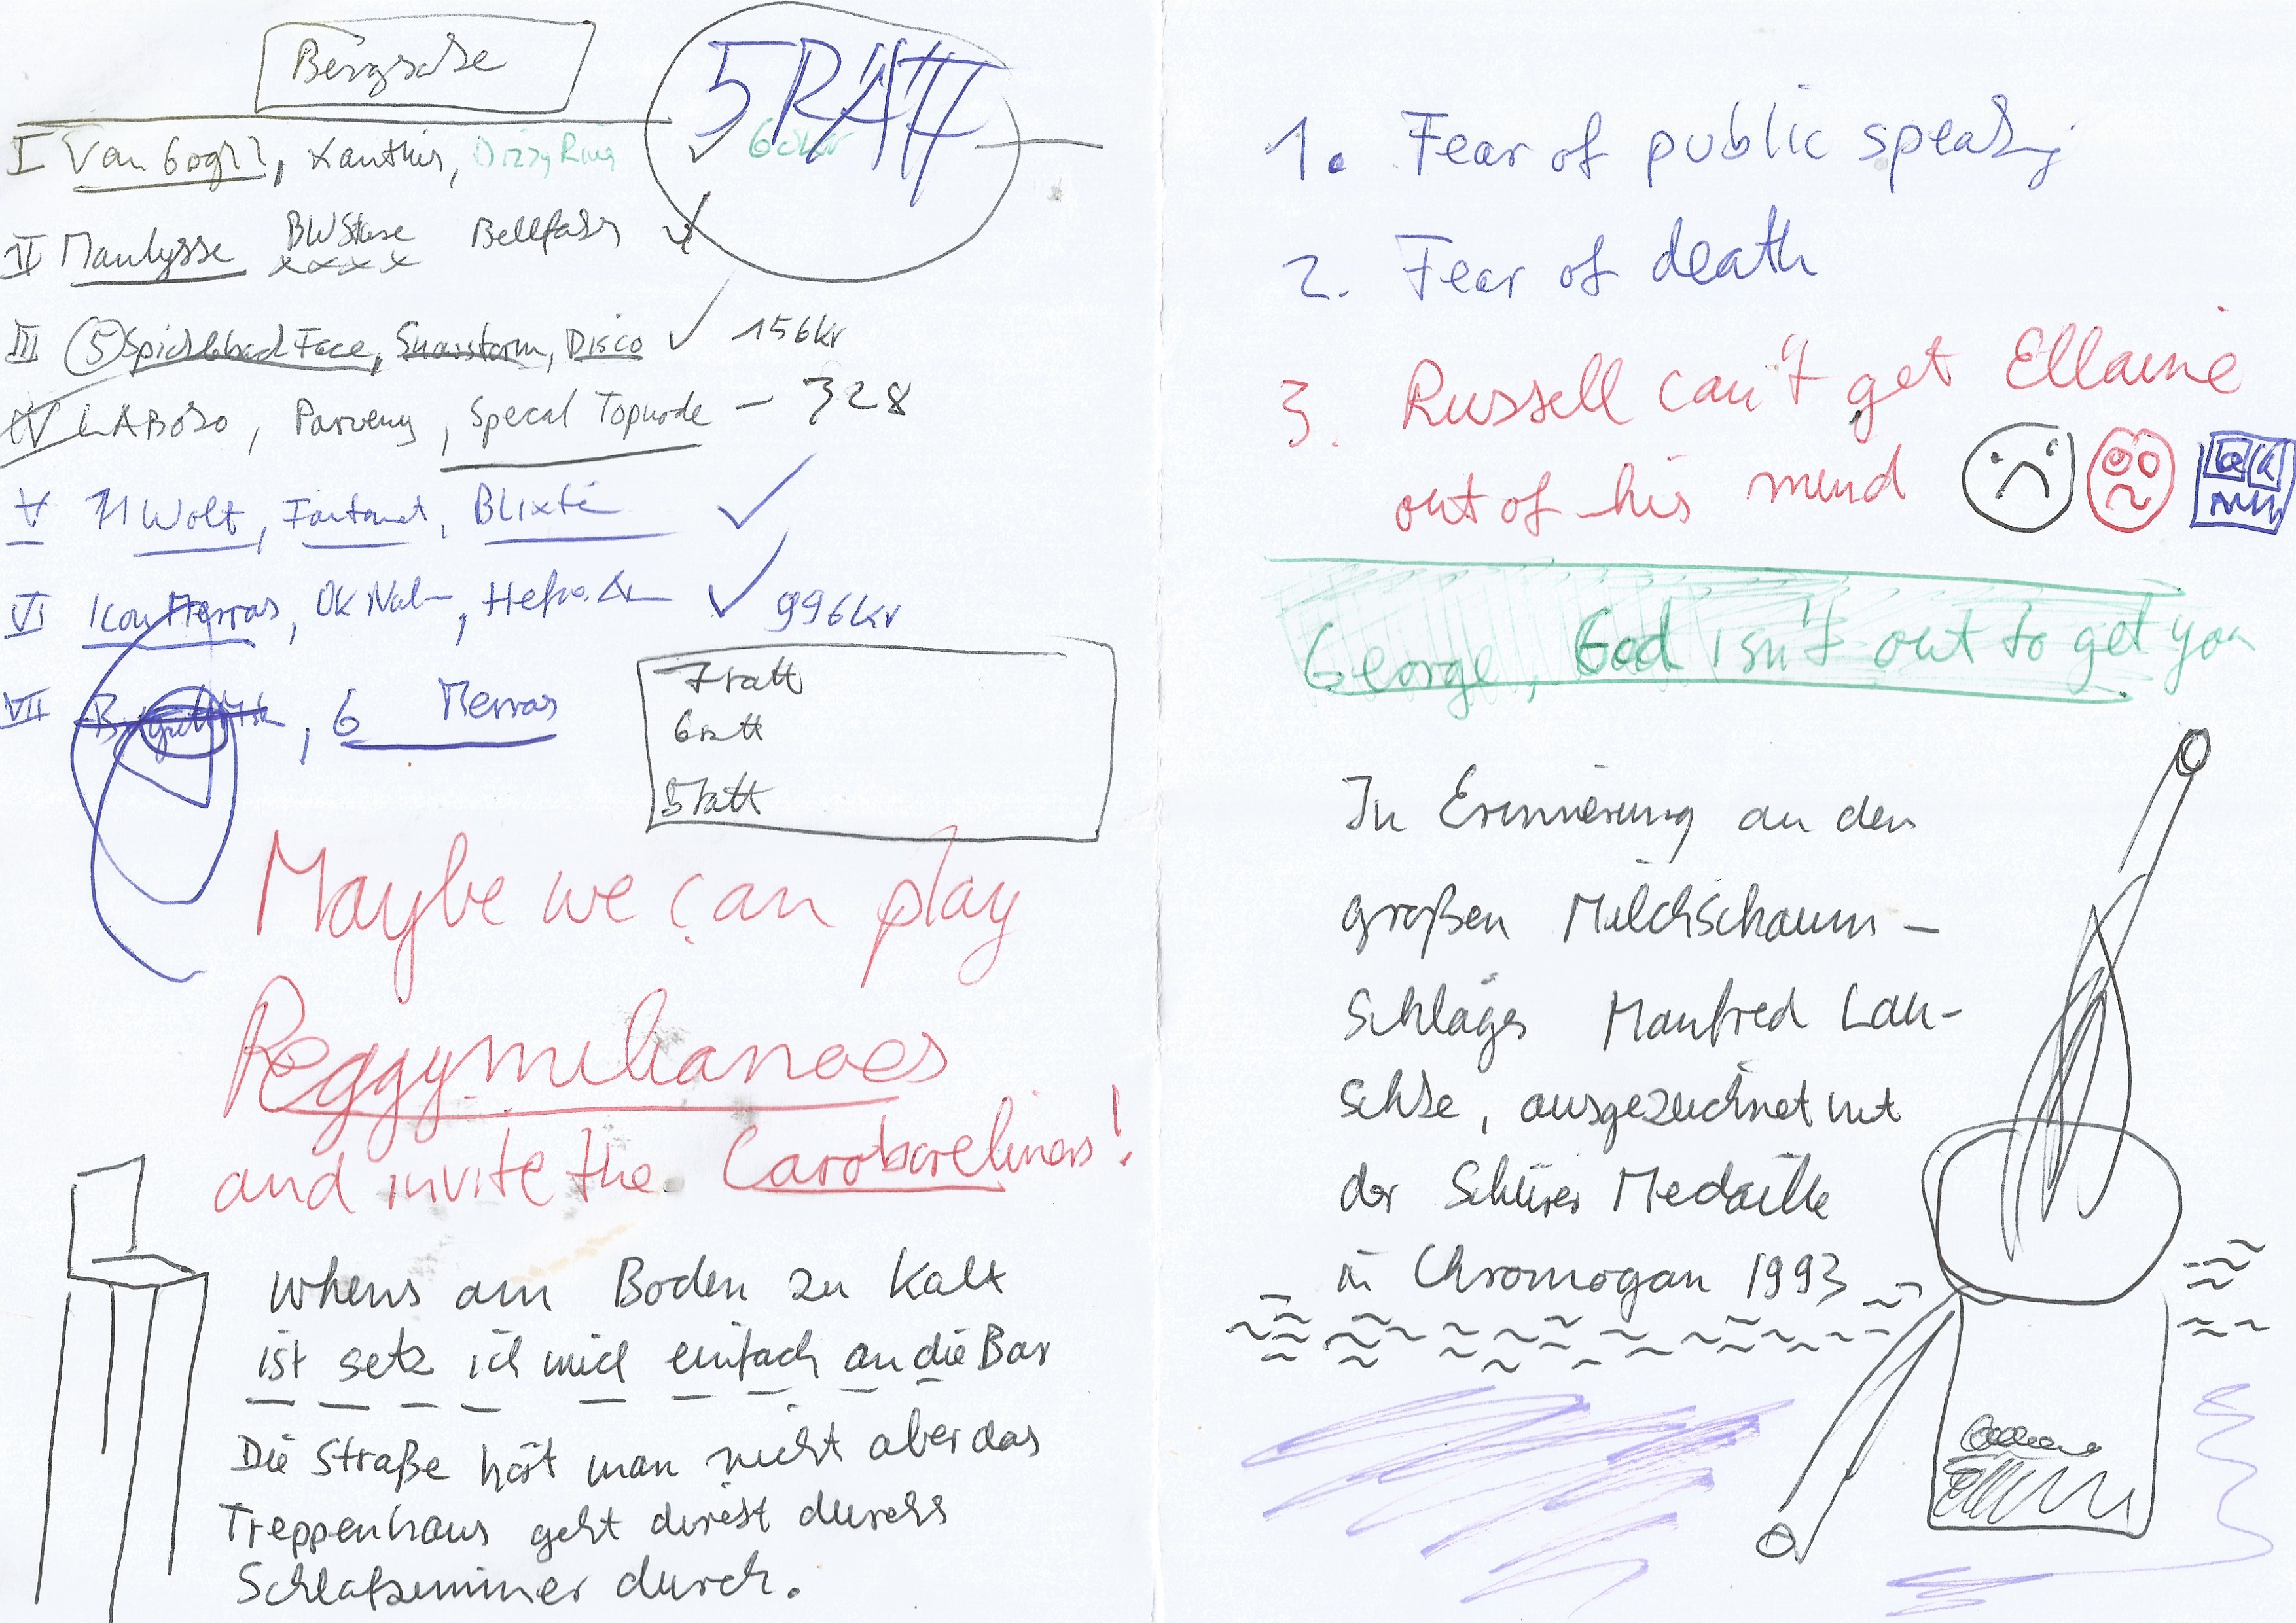 5 RÄTT
I Van Gogh, Xanthis, Dizzy Ring ✓ 60kr
II Maulysse Bellfass ✓
III (5) Face, Disco ✓ 156kr
IV , Parveny, Specal Topnode – 328
V 11 Wolt, , Blixte ✓
VI Icon Merras, OK ✓ 996kr
VII , 6 Merras
7 ratt
6 ratt
5 ratt
Maybe we can play
Peggymilianoes
and invite the Carobareliners!
Whens am Boden zu Kalt
ist setz ich mich einfach an die Bar
Die Straße hört man nicht aber das
Treppenhaus geht direkt durchs
Schlafzimmer durch.
1. Fear of public speaking
2. Fear of death
3. Russell can't get Ellaine
out of his mind
George, God isn't out to get you
In Erinnerung an den
großen Milchschaum-
Schläger Manfred Lau-
, ausgezeichnet mit
der Medaille
in Chromogan 1993